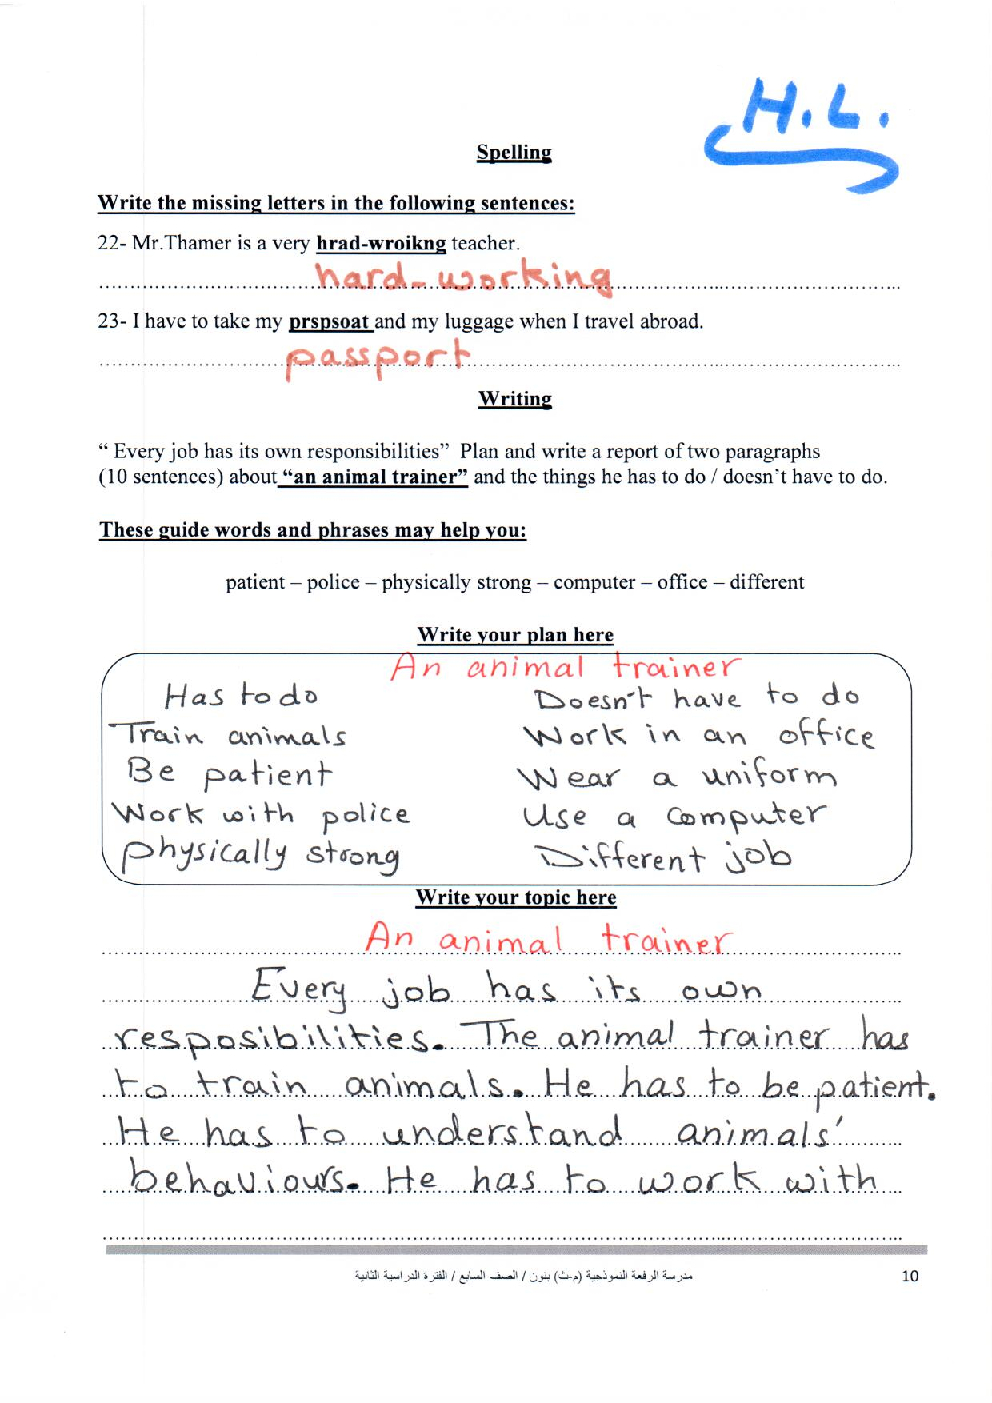 H.L.
Spelling
Write the missing letters in the following sentences:
22- Mr.Thamer is a very hrad-wroikng teacher.
hard-working
23- I have to take my prspsoat and my luggage when I travel abroad.
passport
Writing
“ Every job has its own responsibilities” Plan and write a report of two paragraphs
(10 sentences) about “an animal trainer” and the things he has to do / doesn't have to do.
These guide words and phrases may help you:
patient – police – physically strong – computer – office – different
Write your plan here
An animal trainer
Has to do Doesn't have to do
Train animals Work in an office
Be patient Wear a uniform
Work with police Use a computer
physically strong Different job
Write your topic here
An animal trainer
Every job has its own
resposibilities. The animal trainer has
to train animals. He has to be patient.
He has to understand animals'
behaviours. He has to work with
مدرسة الرفعة النموذجية (م-ث) بنون / الصف السابع / الفترة الدراسية الثانية
10